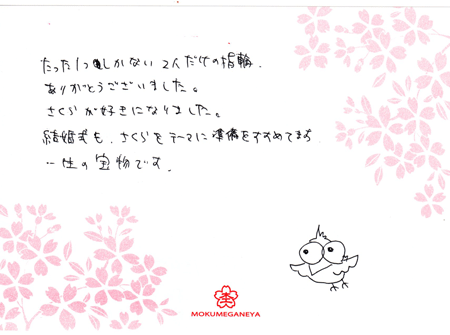 たった1つしかない2人だけの指輪、
ありがとうございました。
さくらが好きになりました。
結婚式も、さくらをテーマに準備をすすめてます
一生の宝物です。
MOKUMEGANEYA